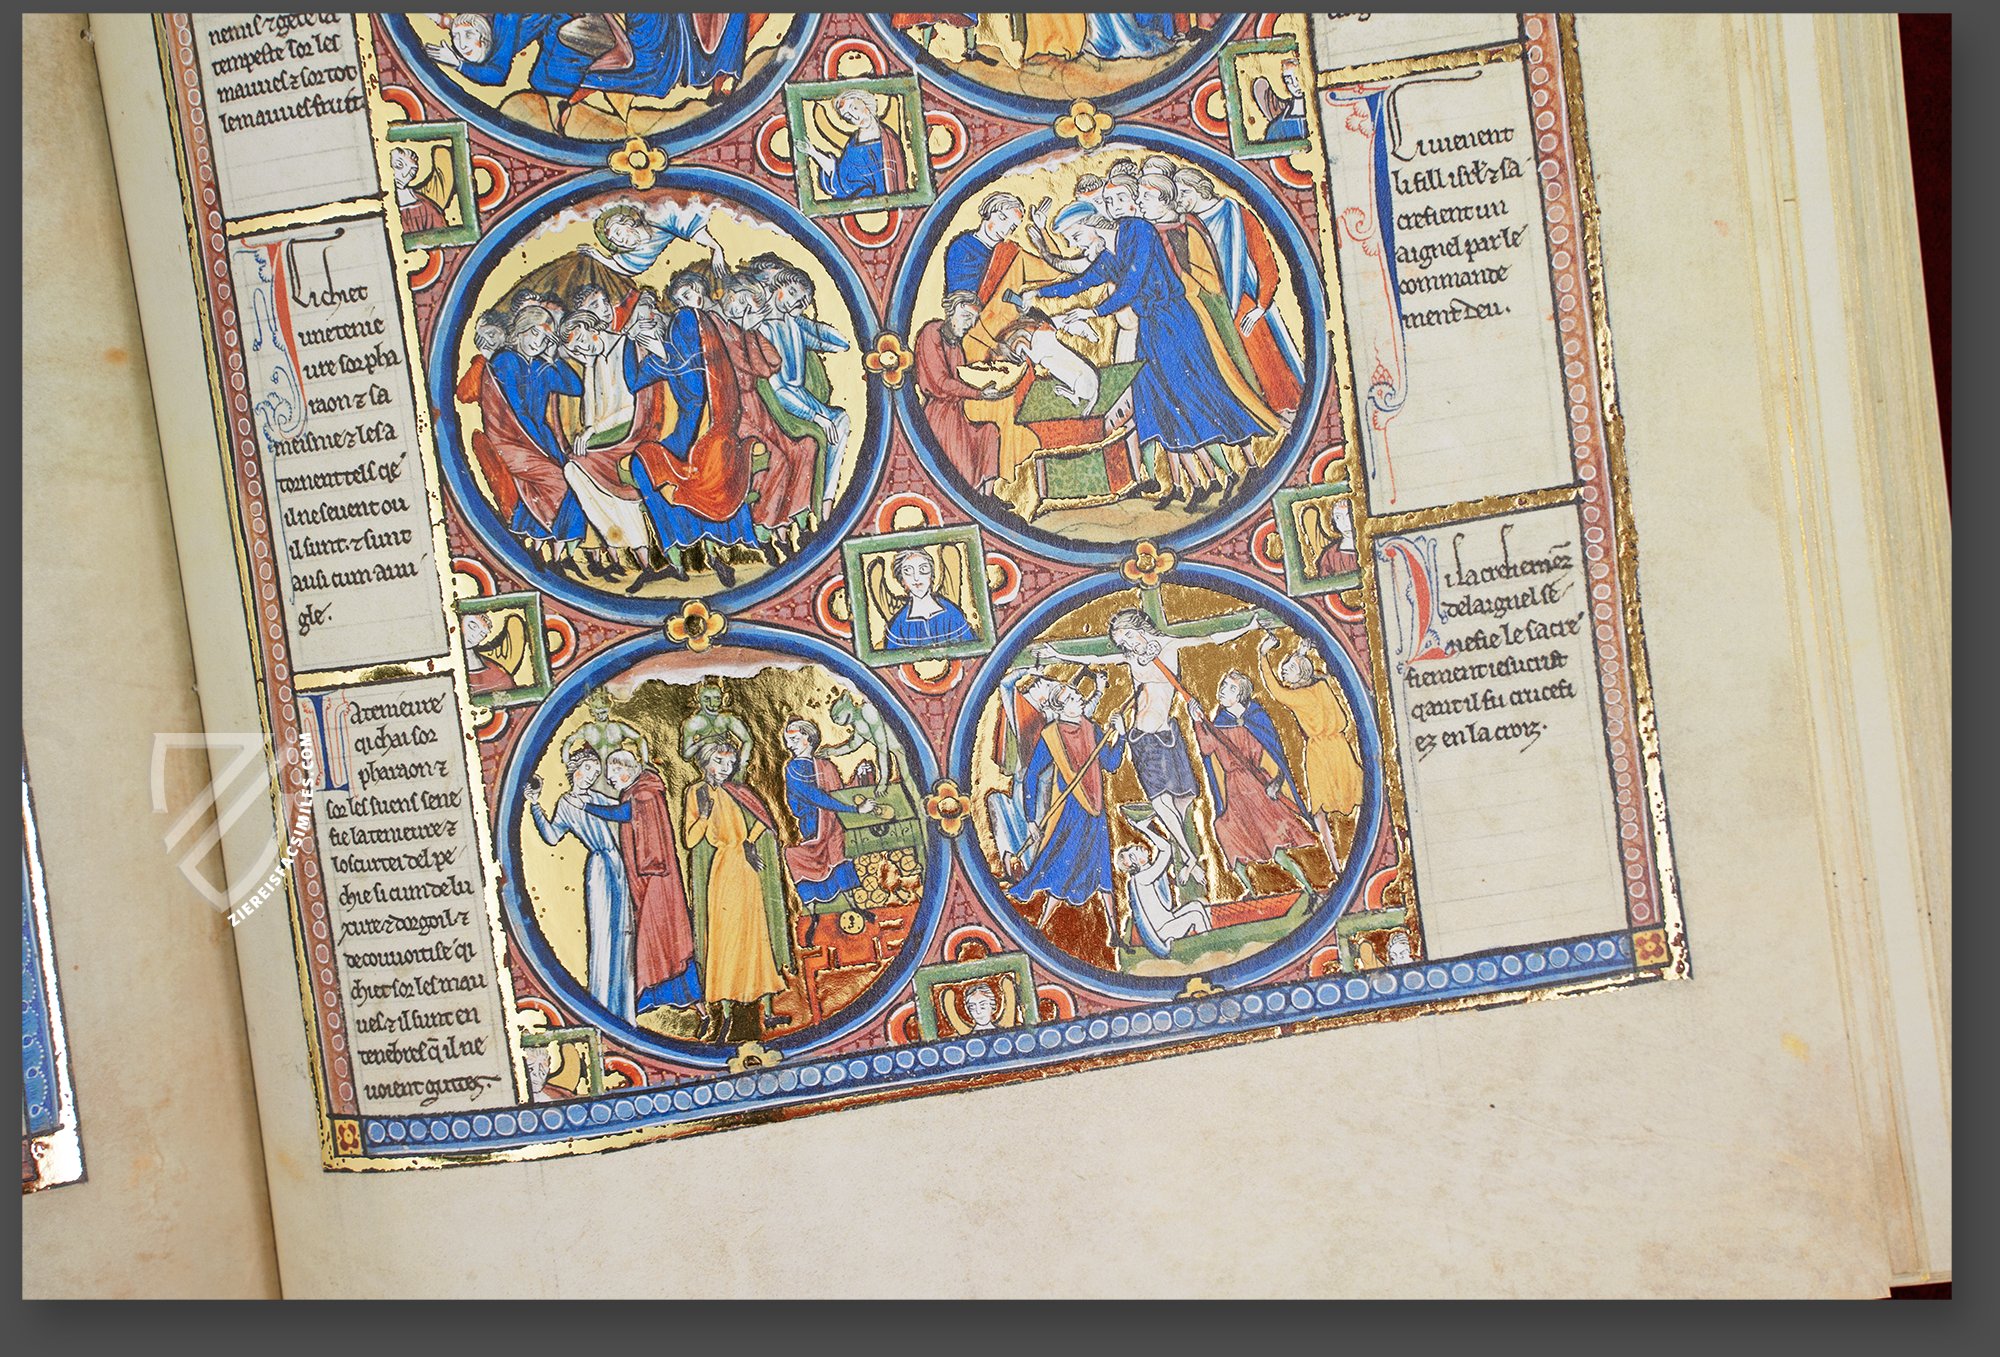 nemis ⁊ gete la
tempeste sor les
mauues ⁊ sor tot
le mauues fruit
Ci chiet
une tenie
ure sor pha
raon ⁊ sa
meisme ⁊ les a
tornent tels qe
il ne seuent ou
il sunt. ⁊ sunt
ausi cum auu
gle.
La tenieure
qi chai sor
pharaon ⁊
sor les suens sene
fie la tenieure ⁊
loscurtei del pe
chie si cum de lu
xure ⁊ dorgoil ⁊
de couuoitise qi
chiet sor les mau
ues ⁊ il sunt en
tenebres q̄ il ne
uoient gutes.
Ci uienent
li fill isrł ⁊ sa
crefient un
aignel par le
commande
ment deu.
de laignel se
nefie le sacre
fiement iesucrist
qant il fu crucefi
ez en la croiz.
ZIEREISFACSIMILES.COM